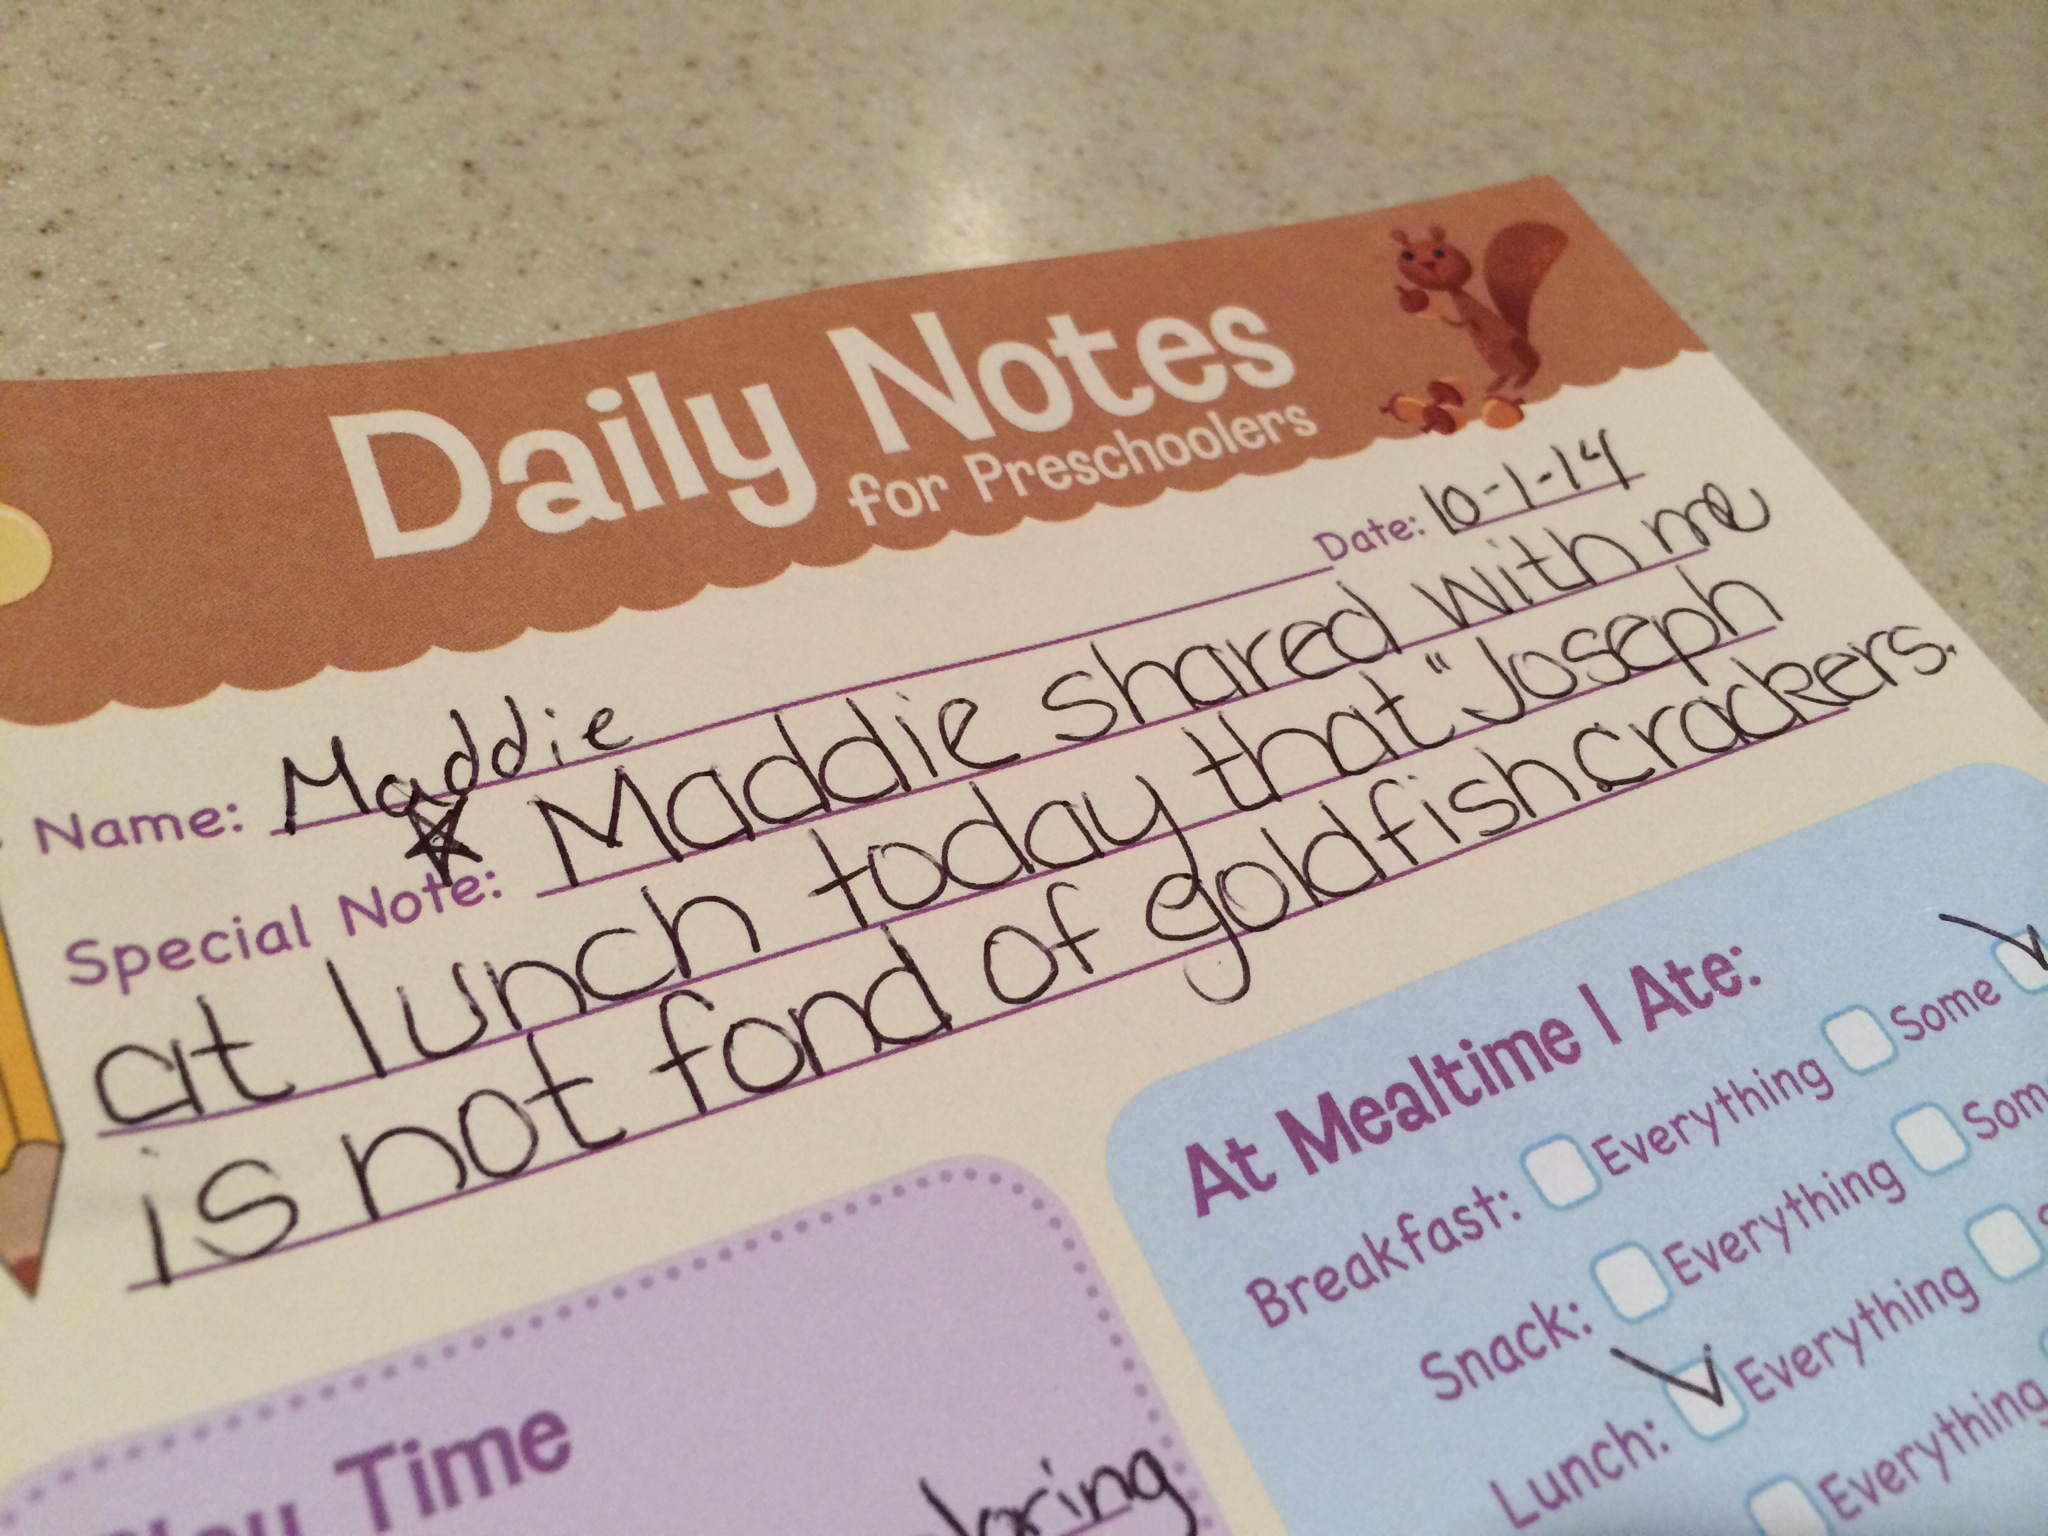 Daily Notes
for Preschoolers
Name: Maddie Date: 10-1-14
Special Note: Maddie shared with me
at lunch today that "Joseph
is not fond of goldfish crackers.
At Mealtime I Ate:
Breakfast: Everything Some
Snack: Everything
Lunch: Everything
Everything
Time